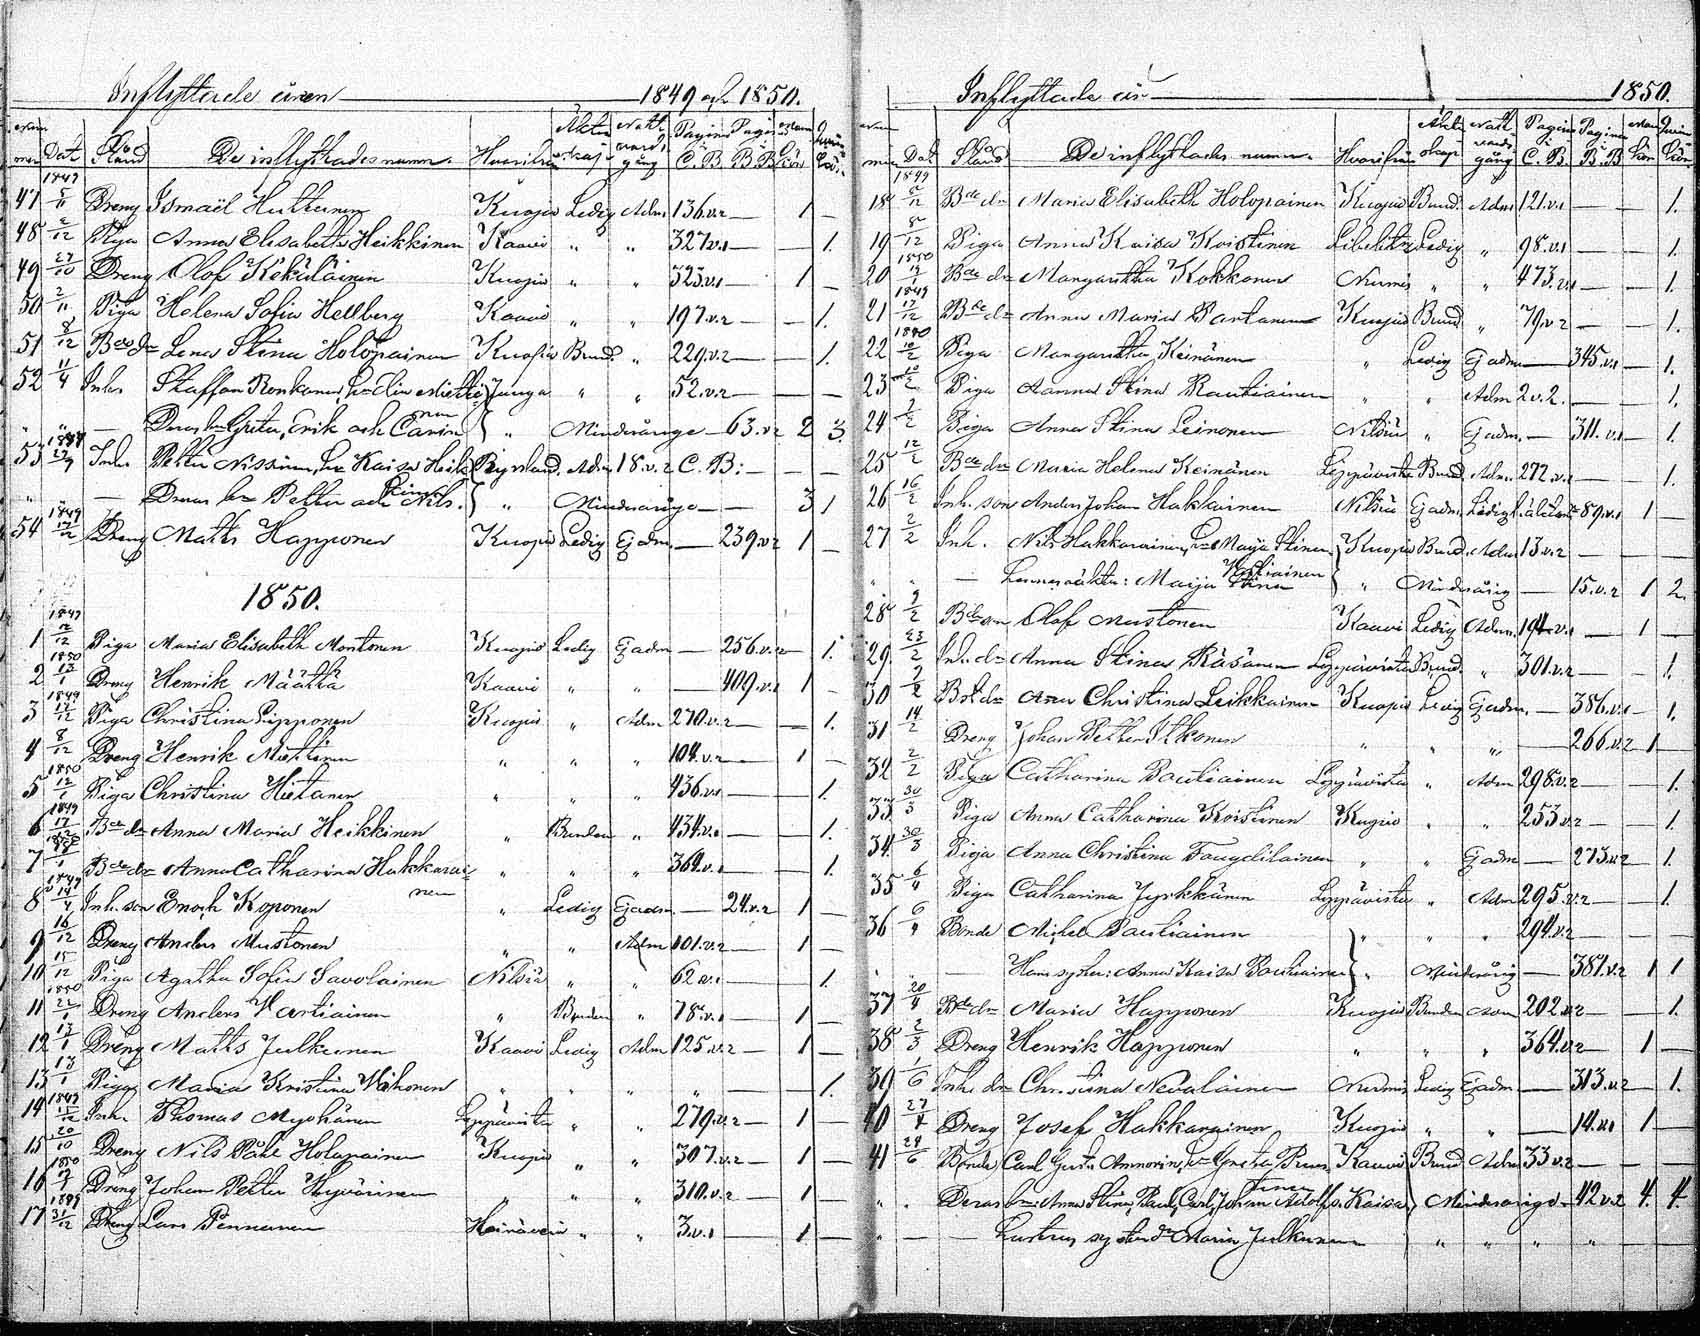 Inflyttade åren 1849 och 1850.
Dat Stånd De inflyttades namn. Hvarifrån Äkten skap Natt vards gång Pagina C.B. Pagina B.B
1849
47 5/11 Dreng Ismaël Huttunen Kuopio Ledig Adm 136.v.2 — 1 —
48 2/12 Piga Anna Elisabeth Heikkinen Kaavi " " 327.v.1 — — 1.
49 27/10 Dreng Olof Kekäläinen Kuopio " " 323.v.1 — 1 —
50 2/11 Piga Helena Sofia Hellberg Kaavi " " 197.v.2 — — 1.
51 8/12 Bdedr Lena Stina Holopainen Kuopio Bund. " 229.v.2 — — 1.
52 11/4 Inh. Staffan Ronkanen, Junga " " 52.v.2 — — —
" " — Deras bn Greta, Erik och Carin " Minderårige — 63.v.2 2 3.
1849
53 27/9 Inh. Petter Nissinen, hu Kaisa Heikkinen Adm. 18.v.2 C.B: — — —
" — Deras bn Petter och Nils. " Minderårige — — 3 1
1849
54 17/12 Dreng Matts Happonen Kuopio Ledig Ej adm. — 239.v.2 1 —
1850.
1849
1 12/12 Piga Maria Elisabeth Montonen Kuopio Ledig Ej adm — 256.v.2 — 1.
1850
2 13/1 Dreng Henrik Määttä Kaavi " " — 409.v.1 1 —
1849
3 17/12 Piga Christina Lipponen Kuopio " Adm 270.v.2 — — 1.
4 8/12 Dreng Henrik Miettinen " " " 104.v.2 — 1 —
1850
5 12/1 Piga Christina Hietanen " " " 436.v.1 — — 1.
1849
6 17/12 Bde dr Anna Maria Heikkinen " Bunden " 434.v.1 — — 1.
7 Bde dr Anna Catharina Hakkarainen " " " 364.v.1 — — 1.
1849
8 Inh. son Enoch Koponen " Ledig Ej adm. — 24.v.2 1 —
9 16/12 Dreng Anders Mustonen " " Adm 101.v.2 — 1 —
10 15/12 Piga Agatha Sofia Savolainen Nilsiä " " 62.v.1 — — 1.
1850
11 22/1 Dreng Anders Vartiainen " Bunden " 78.v.1 — 1 —
12 13/1 Dreng Matts Julkunen Kaavi Ledig Adm 125.v.2 — 1 —
13 13/1 Piga Maria Kristina " " " " — 1.
1849
14 15/12 Inh. Thomas Myöhänen Leppävirta " " 279.v.2 — 1 —
15 20/10 Dreng Nils Påhl Holopainen Kuopio " " 307.v.2 — 1 —
1850
16 Dreng Johan Petter Hyvärinen " " " 310.v.2 — 1 —
1849
17 31/12 Dreng Lars Pennanen Heinävesi " " 3.v.1 — 1 —
Inflyttade år 1850.
Dat Stånd De inflyttades namn. Hvarifrån Äkten skap Natt vards gång Pagina C.B. Pagina B.B
1849
18 5/12 Bde dr Maria Elisabeth Holopainen Kuopio Bund. Adm 121.v.1 — — 1.
19 5/12 Piga Anna Kaisa Koistinen Libelitz Ledig " 98.v.1 — — 1.
1850
20 Bde dr Margaretha Kokkonen Nurmis " " 473.v.1 — — 1.
1849
21 17/12 Bde dr Anna Maria Partanen Kuopio Bund " 79.v.2 — — 1.
1850
22 10/2 Piga Margaretha Keinänen " Ledig Ej adm — 345.v.1 — 1.
23 10/2 Piga Sanna Stina Rautiainen " " Adm 2.v.2. — — 1.
24 Piga Anna Stina Leinonen Nilsiä " Ej adm. — 311.v.1 — 1.
25 12/2 Bde dr Maria Helena Keinänen Leppävirta Bund. Adm. 272.v.1 — — 1.
26 16/2 Inh. son Anders Johan Hakkarainen Nilsiä Ej adm. Ledig 89.v.1 1 —
27 2/2 Inh. Nils Hakkarainen, hu Maija Stina Kuopio Bund. Adm 13.v.2 — — —
Vartiainen
" " — Maija Stina " Minderårig — 15.v.2 1 2.
28 9/2 Bde son Olof Mustonen Kaavi Ledig Adm. 194.v.1 — 1 —
29 23/2 Inh. dr Anna Stina Räsänen Leppävirta Bund. " 301.v.2 — — 1.
30 Bde dr Anna Christina Leikkainen Kuopio Ledig Ej adm. — 386.v.1 — 1.
31 14/2 Dreng Johan Petter Itkonen " " " — 266.v.2 1 —
32 2/2 Piga Catharina Pautiainen Leppävirta " Adm 298.v.2 — — 1.
33 30/3 Piga Anna Catharina Koistinen Kuopio " " 253.v.2 — — 1.
34 30/3 Piga Anna Christina " " Ej adm — 273.v.2 — 1.
35 6/4 Piga Catharina Jyrkkänen Leppävirta " Adm 295.v.2 — — 1.
36 6/4 Bonde Michel Pautiainen " " " 294.v.2 — — —
" " — Hans syster: Anna Kaisa Pautiainen " Minderårig — 381.v.2 1 1
37 20/4 Bde dr Maria Happonen Kuopio Bunden Adm 202.v.2 — — 1.
38 2/3 Dreng Henrik Happonen " " " 364.v.2 — 1 —
39 1/6 Inh. dr Christina Nevalainen Nurmis Ledig Ej adm. — 313.v.2 — 1.
40 27/4 Dreng Josef Hakkarainen Kuopio " " — 14.v.1 1 —
41 24/6 Bonde Carl Gust. Ammorin, hu Greta Kaavi Bund. Adm 33.v.2 — — —
" . Deras bn: Anna Stina, Paul, Carl, Johan Adolf o. Kaisa. Minderårige — 42.v.2 4. 4.
" — — Hustrus syster dr Maria Julkunen " " " " — —